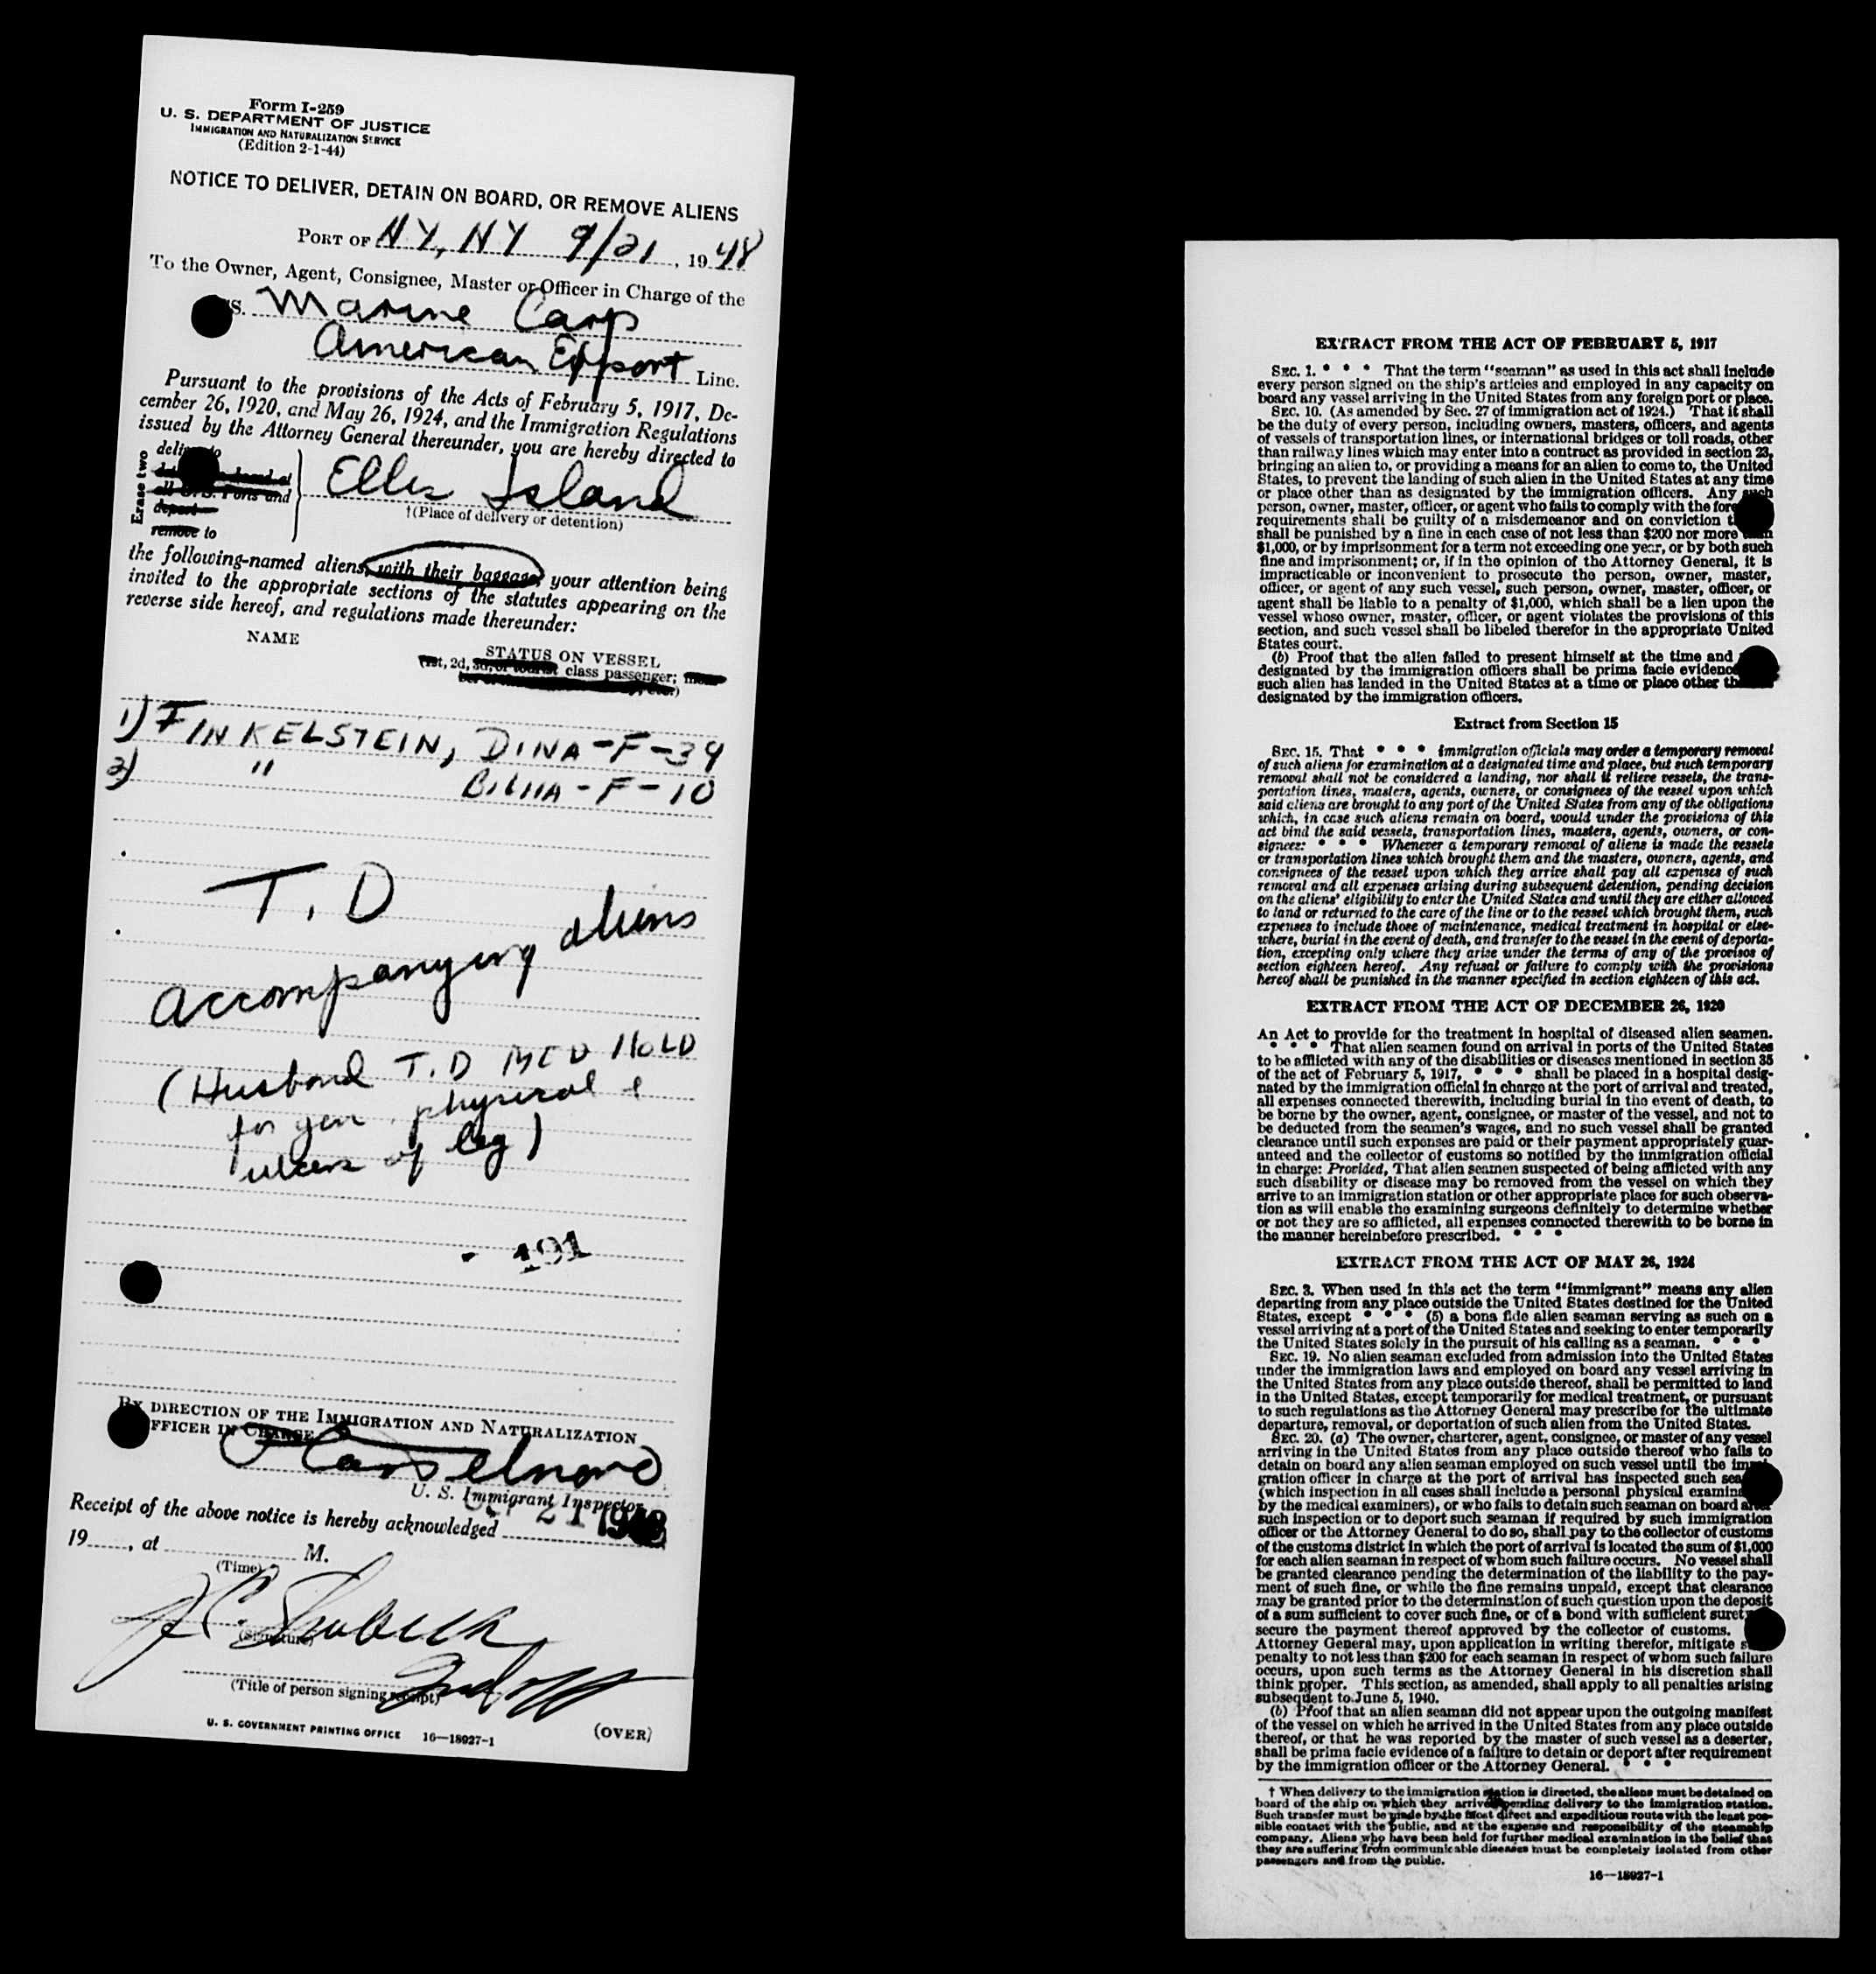 Form I-259
U. S. DEPARTMENT OF JUSTICE
IMMIGRATION AND NATURALIZATION SERVICE
(Edition 2-1-44)
NOTICE TO DELIVER, DETAIN ON BOARD, OR REMOVE ALIENS
PORT OF NY, NY 9/21, 1948
To the Owner, Agent, Consignee, Master or Officer in Charge of the
S. Marine Carp
American Export Line.
Pursuant to the provisions of the Acts of February 5, 1917, De-
cember 26, 1920, and May 26, 1924, and the Immigration Regulations
issued by the Attorney General thereunder, you are hereby directed to
Erase two
deliver to
all U. S. Ports and
deport
remove to
Ellis Island
†(Place of delivery or detention)
the following-named aliens, with their baggage, your attention being
invited to the appropriate sections of the statutes appearing on the
reverse side hereof, and regulations made thereunder:
NAME
STATUS ON VESSEL
(1st, 2d, 3d, or tourist class passenger;
1) FINKELSTEIN, DINA-F-39
2) " BILHA-F-10
T.D
accompanying aliens
(Husband T.D MED HOLD
for gen. physical &
ulcers of leg)
- 191
BY DIRECTION OF THE IMMIGRATION AND NATURALIZATION
OFFICER IN CHARGE
U. S. Immigrant Inspector.
Receipt of the above notice is hereby acknowledged 21 1948
19......, at M.
(Time)
J C
(Signature)
(Title of person signing receipt)
U. S. GOVERNMENT PRINTING OFFICE 16—18927-1 (OVER)
EXTRACT FROM THE ACT OF FEBRUARY 5, 1917
SEC. 1. * * * That the term "seaman" as used in this act shall include
every person signed on the ship's articles and employed in any capacity on
board any vessel arriving in the United States from any foreign port or place.
SEC. 10. (As amended by Sec. 27 of immigration act of 1924.) That it shall
be the duty of every person, including owners, masters, officers, and agents
of vessels of transportation lines, or international bridges or toll roads, other
than railway lines which may enter into a contract as provided in section 23,
bringing an alien to, or providing a means for an alien to come to, the United
States, to prevent the landing of such alien in the United States at any time
or place other than as designated by the immigration officers. Any such
person, owner, master, officer, or agent who fails to comply with the fore
requirements shall be guilty of a misdemeanor and on conviction t
shall be punished by a fine in each case of not less than $200 nor more than
$1,000, or by imprisonment for a term not exceeding one year, or by both such
fine and imprisonment; or, if in the opinion of the Attorney General, it is
impracticable or inconvenient to prosecute the person, owner, master,
officer, or agent of any such vessel, such person, owner, master, officer, or
agent shall be liable to a penalty of $1,000, which shall be a lien upon the
vessel whose owner, master, officer, or agent violates the provisions of this
section, and such vessel shall be libeled therefor in the appropriate United
States court.
(b) Proof that the alien failed to present himself at the time and
designated by the immigration officers shall be prima facie evidenc
such alien has landed in the United States at a time or place other th
designated by the immigration officers.
Extract from Section 15
SEC. 15. That * * * immigration officials may order a temporary removal
of such aliens for examination at a designated time and place, but such temporary
removal shall not be considered a landing, nor shall it relieve vessels, the trans-
portation lines, masters, agents, owners, or consignees of the vessel upon which
said aliens are brought to any port of the United States from any of the obligations
which, in case such aliens remain on board, would under the provisions of this
act bind the said vessels, transportation lines, masters, agents, owners, or con-
signees: * * * Whenever a temporary removal of aliens is made the vessels
or transportation lines which brought them and the masters, owners, agents, and
consignees of the vessel upon which they arrive shall pay all expenses of such
removal and all expenses arising during subsequent detention, pending decision
on the aliens' eligibility to enter the United States and until they are either allowed
to land or returned to the care of the line or to the vessel which brought them, such
expenses to include those of maintenance, medical treatment in hospital or else-
where, burial in the event of death, and transfer to the vessel in the event of deporta-
tion, excepting only where they arise under the terms of any of the provisos of
section eighteen hereof. Any refusal or failure to comply with the provisions
hereof shall be punished in the manner specified in section eighteen of this act.
EXTRACT FROM THE ACT OF DECEMBER 26, 1920
An Act to provide for the treatment in hospital of diseased alien seamen.
* * * That alien seamen found on arrival in ports of the United States
to be afflicted with any of the disabilities or diseases mentioned in section 35
of the act of February 5, 1917, * * * shall be placed in a hospital desig-
nated by the immigration official in charge at the port of arrival and treated,
all expenses connected therewith, including burial in the event of death, to
be borne by the owner, agent, consignee, or master of the vessel, and not to
be deducted from the seamen's wages, and no such vessel shall be granted
clearance until such expenses are paid or their payment appropriately guar-
anteed and the collector of customs so notified by the immigration official
in charge: Provided, That alien seamen suspected of being afflicted with any
such disability or disease may be removed from the vessel on which they
arrive to an immigration station or other appropriate place for such observa-
tion as will enable the examining surgeons definitely to determine whether
or not they are so afflicted, all expenses connected therewith to be borne in
the manner hereinbefore prescribed. * * *
EXTRACT FROM THE ACT OF MAY 26, 1924
SEC. 3. When used in this act the term "immigrant" means any alien
departing from any place outside the United States destined for the United
States, except * * * (5) a bona fide alien seaman serving as such on a
vessel arriving at a port of the United States and seeking to enter temporarily
the United States solely in the pursuit of his calling as a seaman. * * *
SEC. 19. No alien seaman excluded from admission into the United States
under the immigration laws and employed on board any vessel arriving in
the United States from any place outside thereof, shall be permitted to land
in the United States, except temporarily for medical treatment, or pursuant
to such regulations as the Attorney General may prescribe for the ultimate
departure, removal, or deportation of such alien from the United States.
SEC. 20. (a) The owner, charterer, agent, consignee, or master of any vessel
arriving in the United States from any place outside thereof who fails to
detain on board any alien seaman employed on such vessel until the immi-
gration officer in charge at the port of arrival has inspected such sea
(which inspection in all cases shall include a personal physical examina
by the medical examiners), or who fails to detain such seaman on board after
such inspection or to deport such seaman if required by such immigration
officer or the Attorney General to do so, shall pay to the collector of customs
of the customs district in which the port of arrival is located the sum of $1,000
for each alien seaman in respect of whom such failure occurs. No vessel shall
be granted clearance pending the determination of the liability to the pay-
ment of such fine, or while the fine remains unpaid, except that clearance
may be granted prior to the determination of such question upon the deposit
of a sum sufficient to cover such fine, or of a bond with sufficient surety
secure the payment thereof approved by the collector of customs.
Attorney General may, upon application in writing therefor, mitigate s
penalty to not less than $200 for each seaman in respect of whom such failure
occurs, upon such terms as the Attorney General in his discretion shall
think proper. This section, as amended, shall apply to all penalties arising
subsequent to June 5, 1940.
(b) Proof that an alien seaman did not appear upon the outgoing manifest
of the vessel on which he arrived in the United States from any place outside
thereof, or that he was reported by the master of such vessel as a deserter,
shall be prima facie evidence of a failure to detain or deport after requirement
by the immigration officer or the Attorney General. * * *
† When delivery to the immigration station is directed, the aliens must be detained on
board of the ship on which they arrive pending delivery to the immigration station.
Such transfer must be made by the most direct and expeditious route with the least pos-
sible contact with the public, and at the expense and responsibility of the steamship
company. Aliens who have been held for further medical examination in the belief that
they are suffering from communicable diseases must be completely isolated from other
passengers and from the public.
16—18927-1